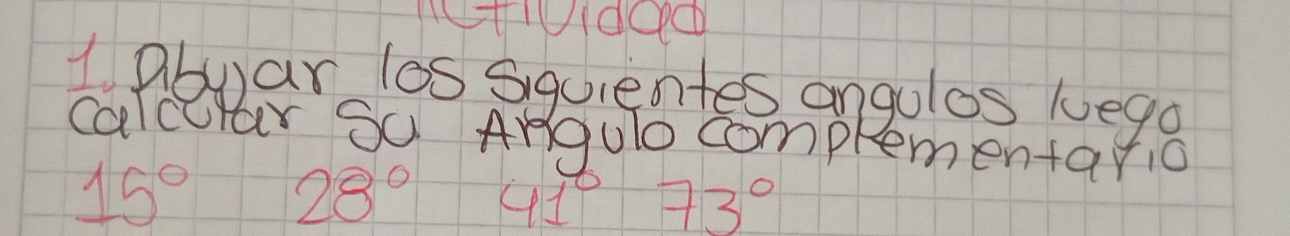 Actividad
1. Dibujar los siguientes angulos luego
calcular su Angulo complementario
15° 28° 41° 73°